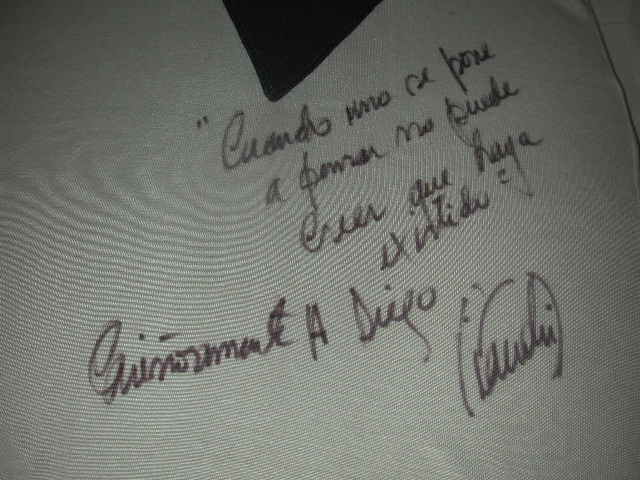 "Cuando uno se pone
a pensar no puede
Creer que haya
existido"
Cariñosamente A Diego